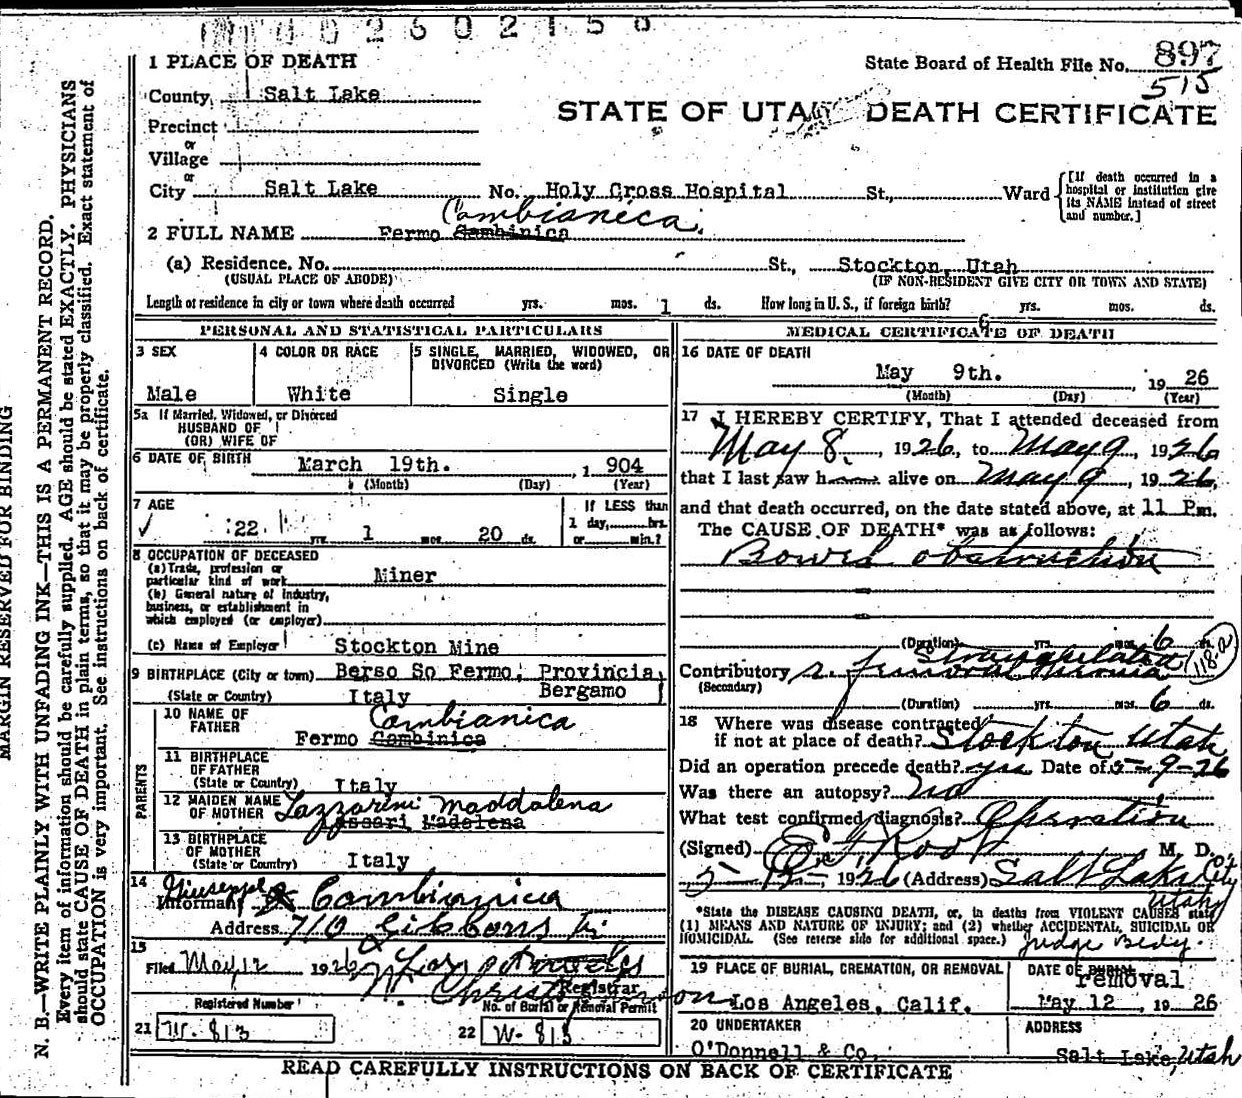 1 PLACE OF DEATH
State Board of Health File No. 897
515
County Salt Lake
STATE OF UTAH DEATH CERTIFICATE
Precinct
or
Village
or
City Salt Lake No. Holy Cross Hospital St., Ward
[If death occurred in a hospital or institution give its NAME instead of street and number.]
Cambianica.
2 FULL NAME Fermo Cambinica
(a) Residence. No. St., Stockton, Utah
(USUAL PLACE OF ABODE) (IF NON-RESIDENT GIVE CITY OR TOWN AND STATE)
Length of residence in city or town where death occurred yrs. mos. 1 ds. How long in U. S., if foreign birth? 6 yrs. mos. ds.
PERSONAL AND STATISTICAL PARTICULARS
3 SEX
Male
4 COLOR OR RACE
White
5 SINGLE, MARRIED, WIDOWED, OR
DIVORCED (Write the word)
Single
5a If Married, Widowed, or Divorced
HUSBAND OF
(OR) WIFE OF
6 DATE OF BIRTH March 19th. , 1 904
(Month) (Day) (Year)
7 AGE
22 yrs. 1 mos. 20 ds.
If LESS than
1 day, hrs.
or min.?
8 OCCUPATION OF DECEASED
(a) Trade, profession or
particular kind of work Miner
(b) General nature of industry,
business, or establishment in
which employed (or employer)
(c) Name of Employer Stockton Mine
9 BIRTHPLACE (City or town) Berso So Fermo, Provincia,
Bergamo
(State or Country) Italy
PARENTS
10 NAME OF
FATHER
Cambianica
Fermo Cambinica
11 BIRTHPLACE
OF FATHER
(State or Country) Italy
12 MAIDEN NAME
OF MOTHER
Lazzarini Maddalena
Madelena
13 BIRTHPLACE
OF MOTHER
(State or Country) Italy
14 Giuseppe
Informant Cambianica
Address 710 Gibbons St
Los Angeles
15
Filed May 12 1926
Registrar
Registered Number
21 W-813
No. of Burial or Removal Permit
22 W-813
MEDICAL CERTIFICATE OF DEATH
16 DATE OF DEATH
May 9th. , 19 26
(Month) (Day) (Year)
17 I HEREBY CERTIFY, That I attended deceased from
May 8, 1926, to May 9, 1926
that I last saw h alive on May 9, 1926,
and that death occurred, on the date stated above, at 11 Pm.
The CAUSE OF DEATH* was as follows:
Bowel obstruction
(Duration) yrs. mos. 6 ds.
118-a
Strangulated
Contributory r. femoral hernia
(Secondary)
(Duration) yrs. mos. 6 ds.
18 Where was disease contracted
if not at place of death? Stockton Utah
Did an operation precede death? yes Date of 5-9-26
Was there an autopsy? No
What test confirmed diagnosis? Operation
(Signed) M. D.
1926 (Address) Salt Lake City
Utah
*State the DISEASE CAUSING DEATH, or, in deaths from VIOLENT CAUSES state
(1) MEANS AND NATURE OF INJURY; and (2) whether ACCIDENTAL, SUICIDAL OR
HOMICIDAL. (See reverse side for additional space.) Judge Bldg.
19 PLACE OF BURIAL, CREMATION, OR REMOVAL
Los Angeles, Calif.
DATE OF BURIAL
removal
May 12 , 19 26
20 UNDERTAKER
O'Donnell & Co.
ADDRESS
Salt Lake, Utah
READ CAREFULLY INSTRUCTIONS ON BACK OF CERTIFICATE
MARGIN RESERVED FOR BINDING
N. B.—WRITE PLAINLY WITH UNFADING INK—THIS IS A PERMANENT RECORD.
Every item of information should be carefully supplied. AGE should be stated EXACTLY. PHYSICIANS
should state CAUSE OF DEATH in plain terms, so that it may be properly classified. Exact statement of
OCCUPATION is very important. See instructions on back of certificate.